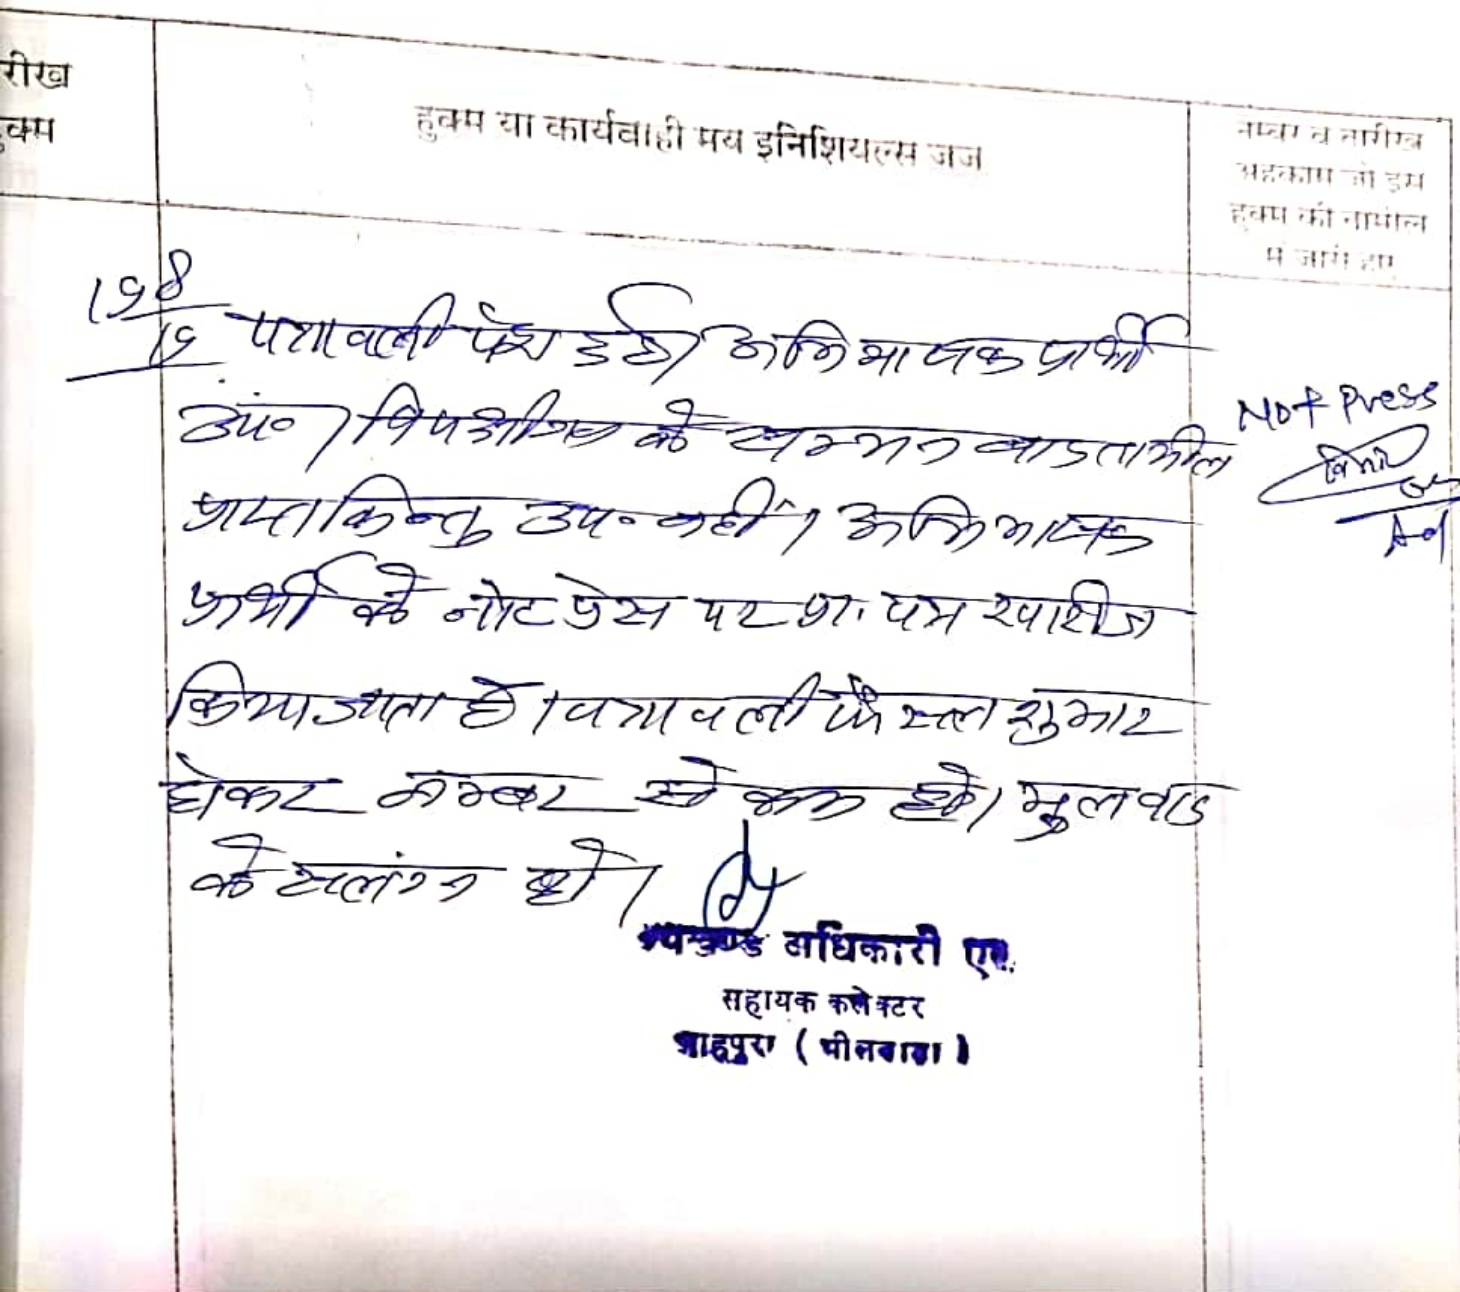 रीख
हुक्म या कार्यवाही मय इनिशियल्स जज
नम्बर व तारीख
अहकाम जो इस
हुक्म की तामील
में जारी हुए
पत्रावली पेश हुई। अभिभाषक प्रार्थी
उप०। विपक्षीगण के सम्मन बाद तामील
प्राप्त किन्तु उप० नहीं। अभिभाषक
प्रार्थी के नोट प्रेस पर प्रा. पत्र खारीज
किया जाता है। पत्रावली फैसल शुमार
होकर नम्बर से कम हो। मुल वाद
के सलंग्न हो।
Not Press
Ad
अधिकारी एवं
सहायक कलेक्टर
शाहपुरा (भीलवाड़ा)